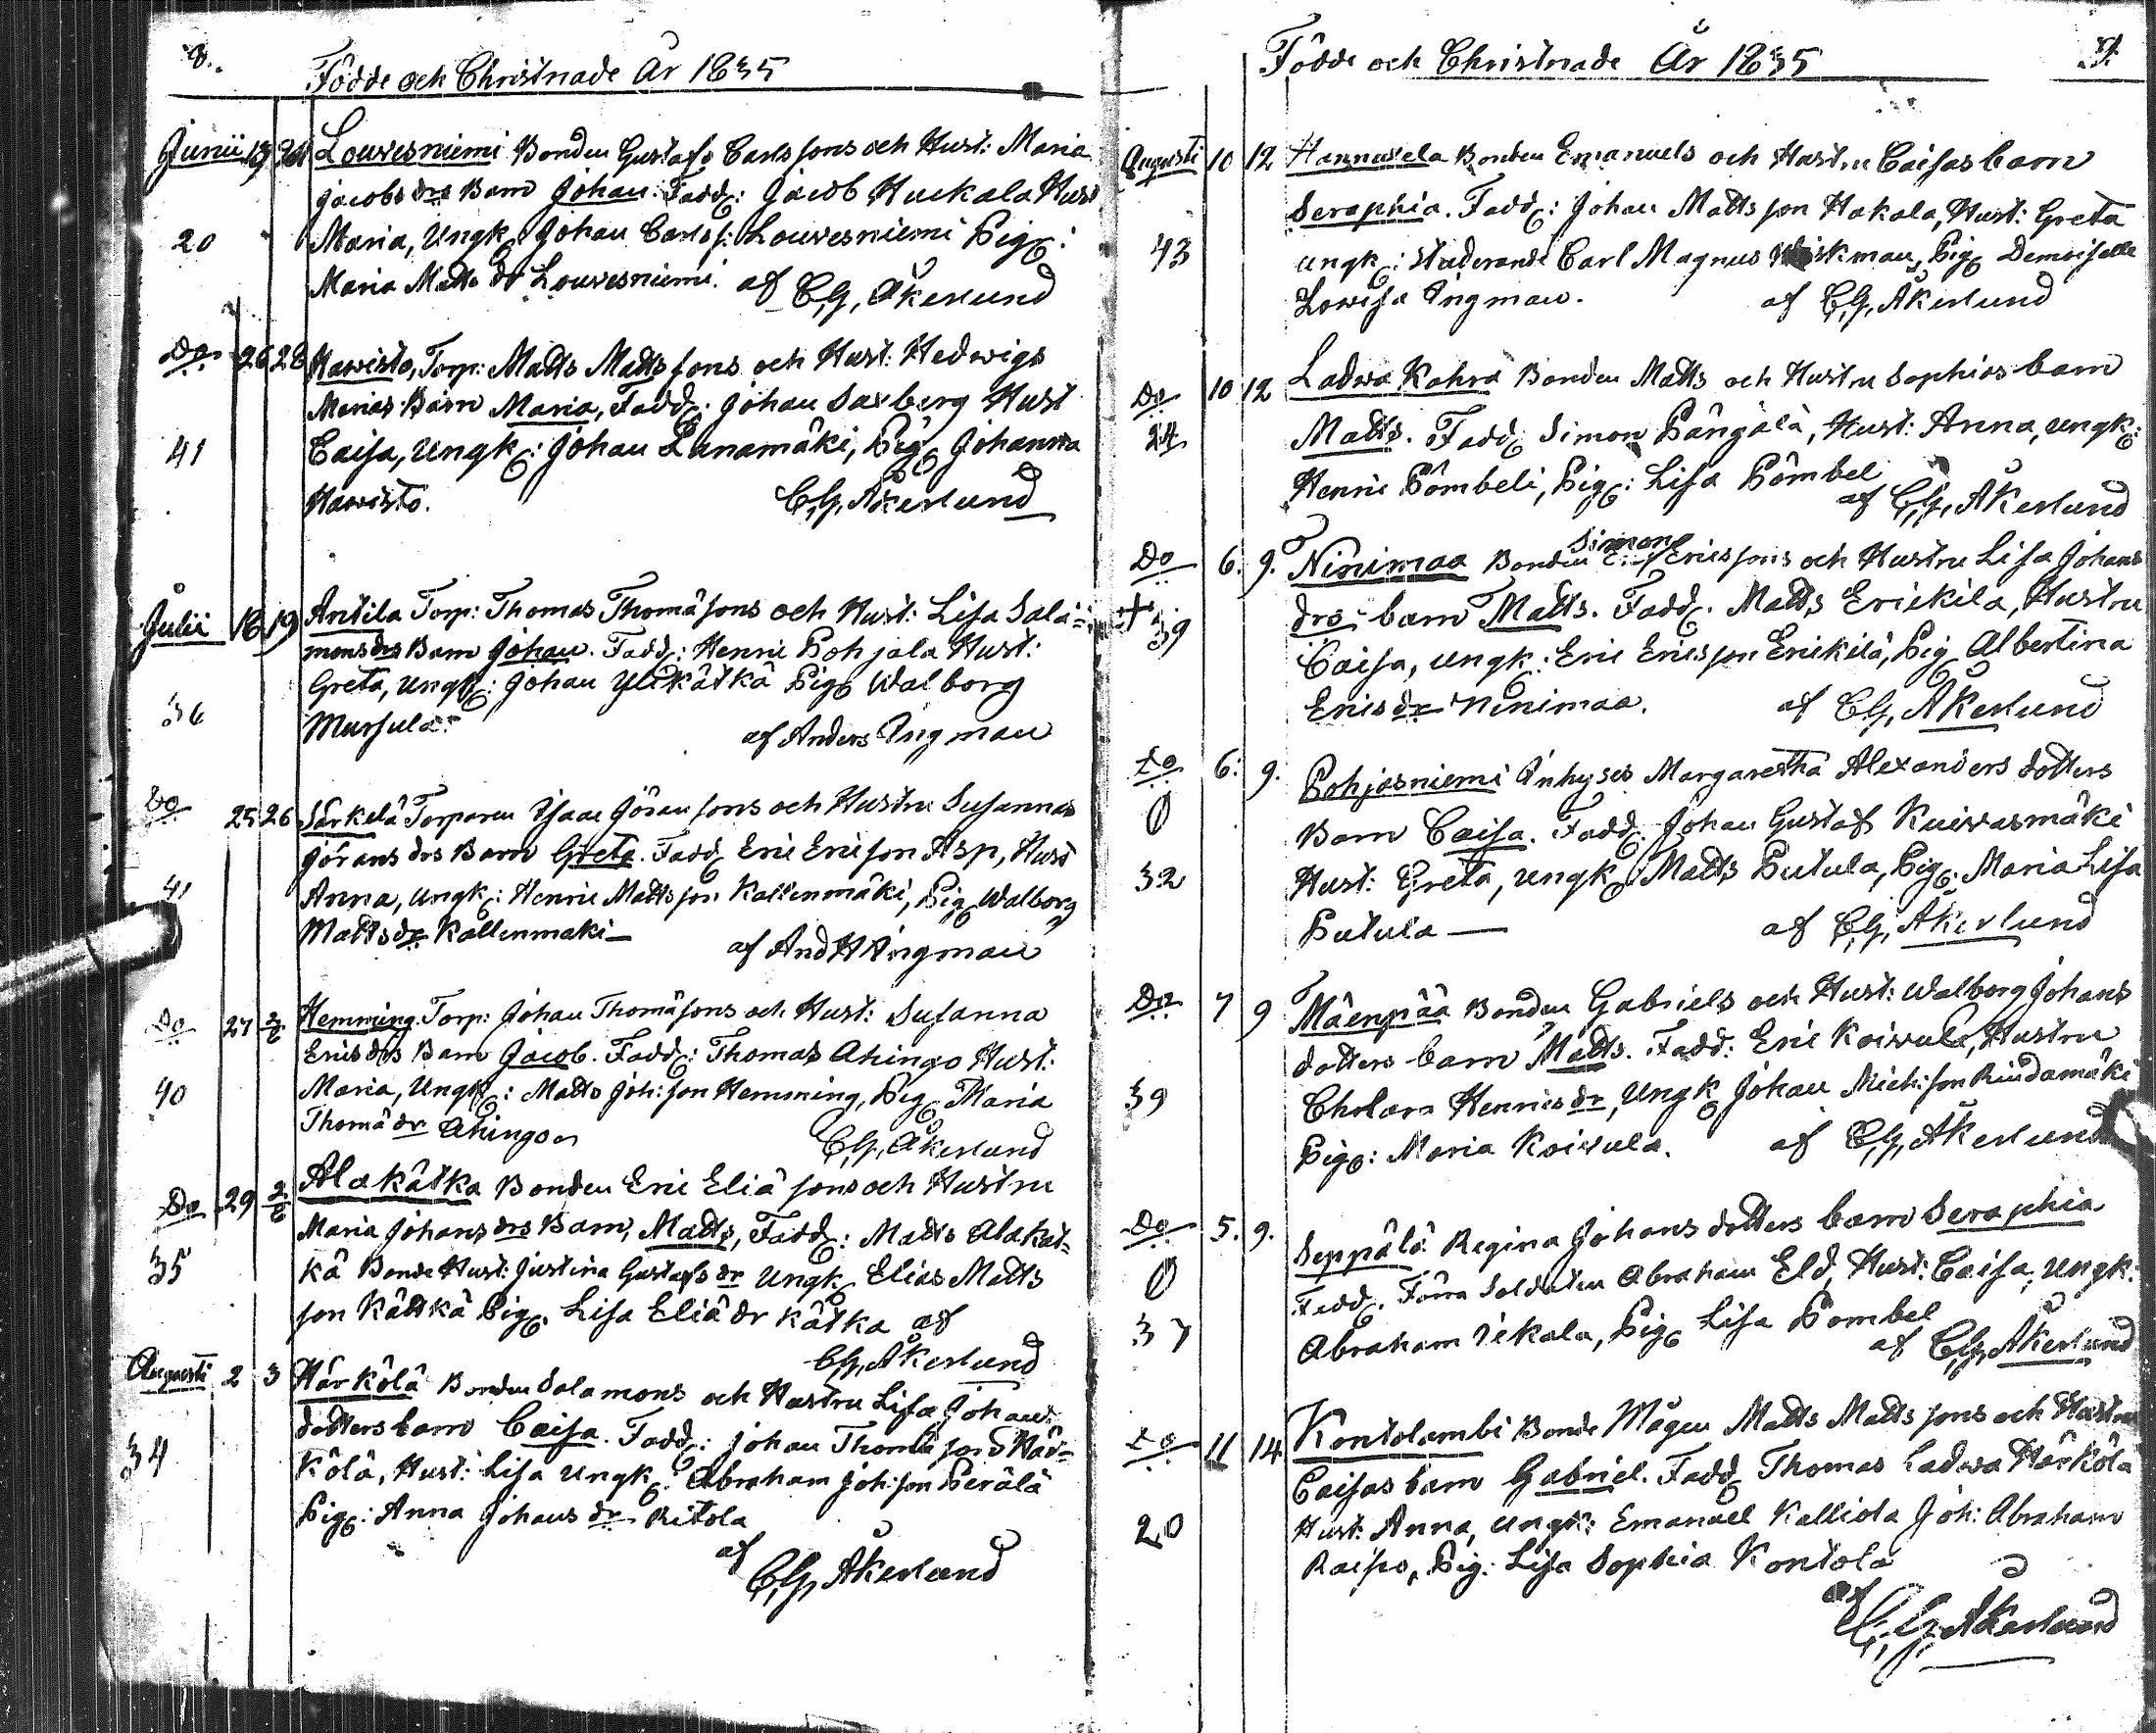 8.
Födde och Christnade År 1835
Junii 19 21 Louvesniemi Bonden Gustafs Carls sons och Hust: Maria
Jacobs drs Barn Johan. Fadd: Jacob Huckala Hust
20 Maria, Ungk: Johan Carls s: Louvesniemi Pig:
Maria Matts dr Louvesniemi. af C,G, Åkerlund
Do 26 28 Hawisto, Torp: Matts Matts sons och Hust: Hedwigs
Marias Barn Maria, Fadd: Johan Saxberg Hust
41 Caisa, Ungk: Johan Lanamäki, Pig: Johanna
Hawisto. C,G, Åkerlund
Julii 18 19 Antila Torp: Thomas Thomä sons och Hust: Lisa Sala=
mons drs Barn Johan. Fadd: Henric Pohjala Hust:
36 Greta, Ungk: Johan Ylikätkä Pig Walborg
Mursula. af Anders Ingman
Do 25 26 Särkelä Torparen Isaac Göran sons och Hustru Susannas
Görans drs Barn Greta. Fadd Eric Ericson Asp, Hust
41 Anna, Ungk: Henric Matts son Kallenmäki, Pig Walborg
Matts dr Kallenmaki— af And H Ingman
Do 27 2/8 Hemming. Torp: Johan Thomä sons och Hust: Susanna
Erics drs Barn Jacob. Fadd: Thomas Ahingo Hust:
40 Maria, Ungk: Matts Joh: son Hemming, Pig Maria
Thomä dr Ahingo C,G, Åkerlund
Do 29 2/8 Alakätka Bonden Eric Eliä sons och Hustru
Maria Johans drs Barn, Matts, Fadd: Matts Alakät=
35 kä Bonde Hust: Justina Gustafs dr Ungk Elias Matts
son Kättkä Pig. Lisa Eliä dr Kätka af
C,G, Åkerlund
Augusti 2 3 Härkölä Bonden Salamons och Hustru Lisa Johans
dotters barn Caisa. Fadd: Johan Thomä sons Här=
34 kölä, Hust: Lisa Ungk: Abraham Joh: son Perälä
Pig: Anna Johans dr Ritola
af
C,G, Åkerlund
Födde och Christnade År 1835 9.
Augusti 10 12 Hannuxela Bonden Emanuels och Hustru Caisas barn
Seraphia. Fadd: Johan Matts son Hakala, Hust: Greta
43 ungk: studerande Carl Magnus Pig Demoiselle
Lowisa Ingman. af C,G, Åkerlund
Do 10 12 Ladwa Kohra Bonden Matts och Hustru Sophias barn
24 Matts. Fadd Simon Pångälä, Hust: Anna, ungk:
Henric Pömbeli, Pig: Lisa Pömbel
af C,G, Åkerlund
Do 6. 9. Ninimaa Bonden Simon Erics sons och Hustru Lisa Johans
+ 39 drs barn Matts. Fadd. Matts Erickila, Hustru
Caisa, ungk: Eric Erics son Erickilä, Pig Albertina
Erics dr Ninimaa. af C,G, Åkerlund
Do 6: 9. Pohjasniemi Inhyses Margaretha Alexanders dotters
Ø Barn Caisa. Fadd. Johan Gustaf Kuivasmäki
32 Hust: Greta, ungk: Matts Putula, Pig: Maria Lisa
Putula — af C,G, Åkerlund
Do 7 9 Mäenpää Bonden Gabriels och Hust: Walborg Johans
dotters barn Matts. Fadd: Eric Koivula, Hustru
39 Henrics dr, Ungk Johan Mich: son Rindamäki
Pig: Maria Koivula. af C,G, Åkerlund
Do 5. 9. Seppälä Regina Johans dotters barn Seraphia
Ø Fadd. Förra Soldaten Abraham Eld, Hust: Caisa, Ungk:
37 Abraham Pig Lisa Pombel
af C,G, Åkerlund
Do 11 14 Kontolambi Bonde Mågen Matts Matts sons och Hustru
Caisas barn Gabriel. Fadd Thomas Ladwa Härkölä
20 Hust: Anna, Ungk: Emanuel Kalliola Joh: Abraham
Raipo, Pig: Lisa Sophia Kontola
af
C,G, Åkerlund